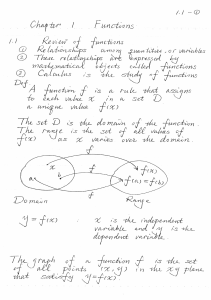 1.1 - ①
Chapter 1 Functions
1.1 Review of functions
① Relationships among quantities, or variables
② These relationships are expressed by
mathematical objects called functions
③ Calculus is the study of functions
Def
A function f is a rule that assigns
to each value x in a set D
a unique value f(x)
The set D is the domain of the function.
The range is the set of all values of
f(x) as x varies over the domain.
f
x
f(x)
a
f(a) = f(b)
f
Domain Range
y = f(x) x is the independent
variable and y is the
dependent variable
The graph of a function f is the set
of all points (x, y) in the xy plane
that satisfy y = f(x).